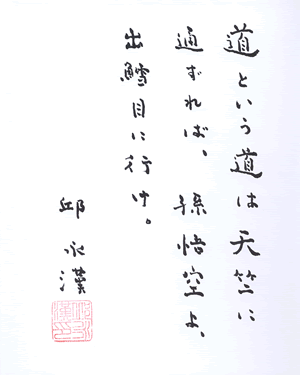 道という道は天竺に
通ずれば、孫悟空よ、
出鱈目に行け。
邱永漢